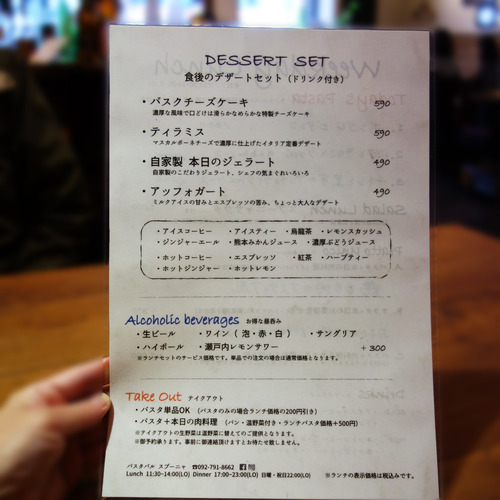 DESSERT SET
食後のデザートセット（ドリンク付き）
・バスクチーズケーキ 590
濃厚な風味で口どけは滑らかなめらかな特製チーズケーキ
・ティラミス 590
マスカルポーネチーズで濃厚に仕上げたイタリア定番デザート
・自家製 本日のジェラート 490
自家製のこだわりジェラート、シェフの気まぐれいろいろ
・アッフォガート 490
ミルクアイスの甘みとエスプレッソの苦み、ちょっと大人なデザート
・アイスコーヒー ・アイスティー ・烏龍茶 ・レモンスカッシュ
・ジンジャーエール ・熊本みかんジュース ・濃厚ぶどうジュース
・ホットコーヒー ・エスプレッソ ・紅茶 ・ハーブティー
・ホットジンジャー ・ホットレモン
Alcoholic beverages お得な昼呑み
・生ビール ・ワイン（ 泡・赤・白 ） ・サングリア
・ハイボール ・瀬戸内レモンサワー +300
※ランチセットのサービス価格です。単品での注文の場合は通常価格となります。
Take Out テイクアウト
・パスタ単品OK （パスタのみの場合ランチ価格の200円引き）
・パスタ＋本日の肉料理 （パン・温野菜付き・ランチパスタ価格＋500円）
※テイクアウトの生野菜は温野菜に替えてのご提供となります。
※御予約承ります。事前に御連絡頂けますとお待たせ致しません。
パスタバル スプーニャ ☎092-791-8662
Lunch 11:30~14:00(LO) Dinner 17:00~23:00(LO) 日曜・祝日22:00(LO) ※ランチの表示価格は税込みです。